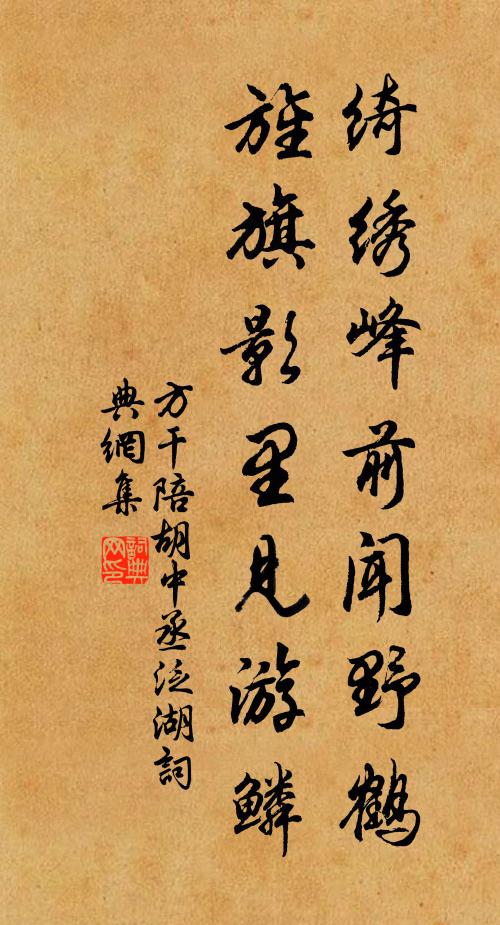 绮绣峰前闻野鹤
旌旗影里见游鳞
方干陪胡中丞泛湖詞
典網集
詞典网印